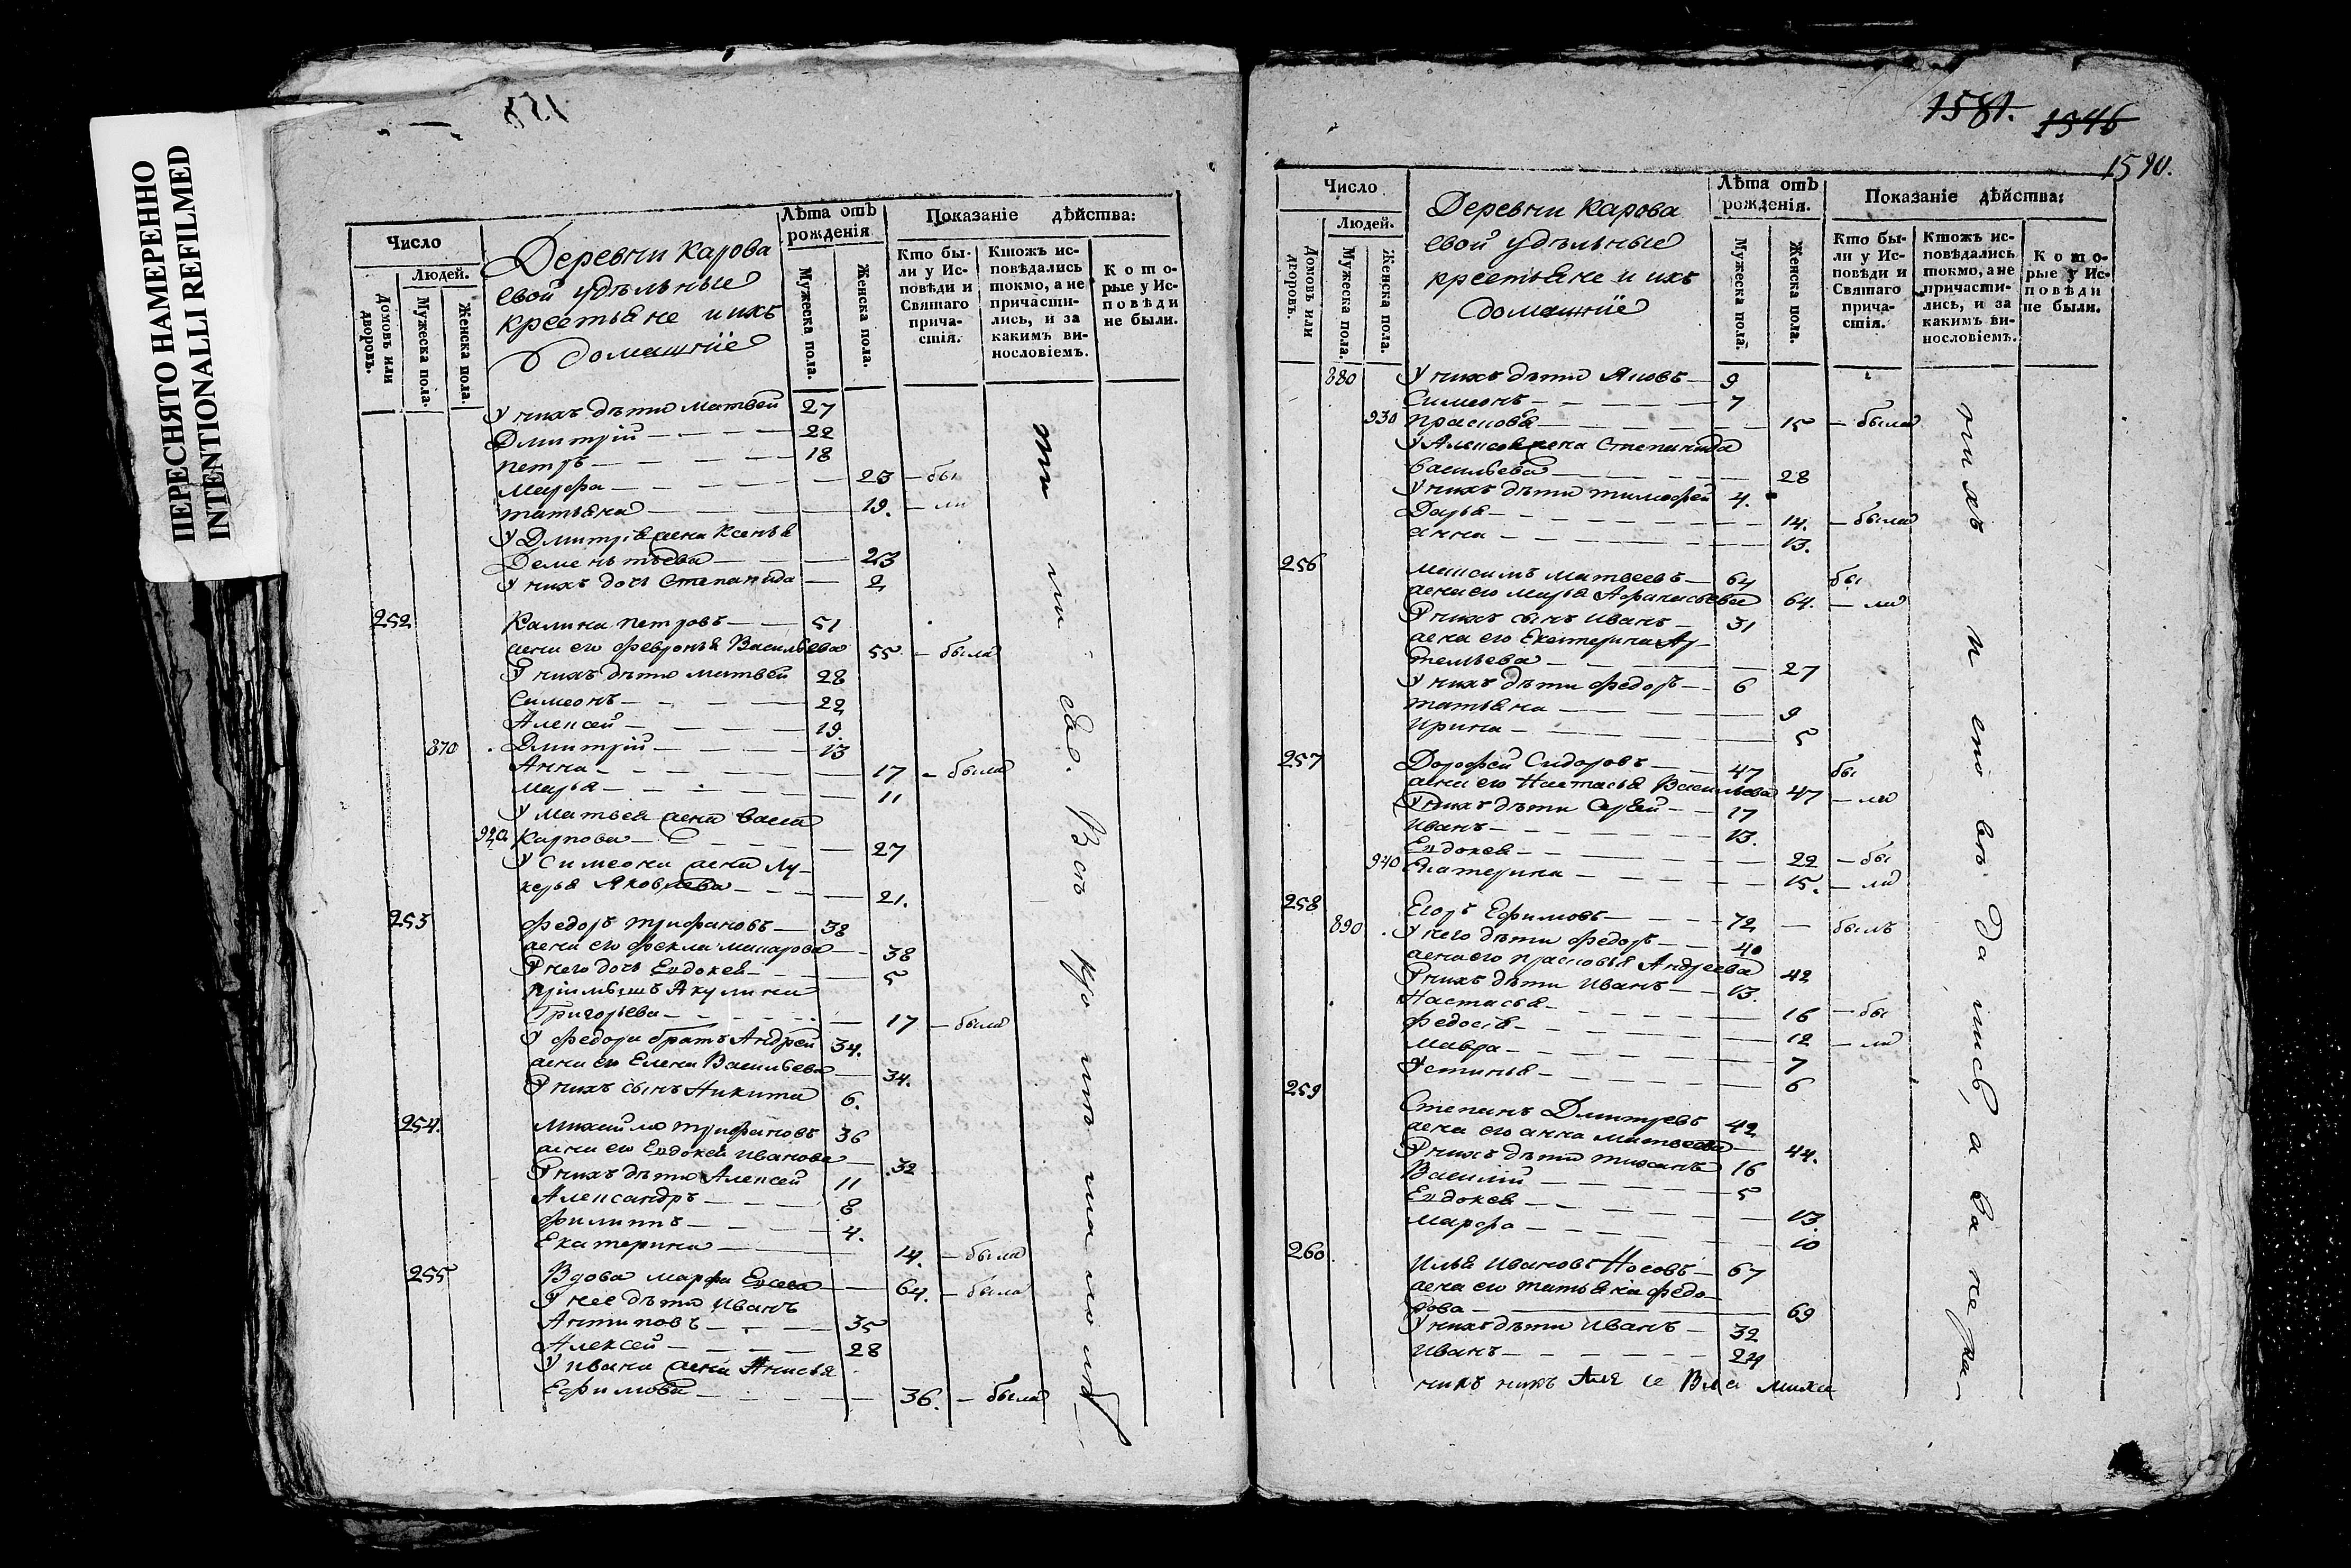 ПЕРЕСНЯТО НАМЕРЕННО
INTENTIONALLI REFILMED
Число
Людей.
Домовъ или дворовъ.
Мужеска пола.
Женска пола.
Деревни Карова
свой удѣльные
крестьяне и ихъ
домашніе
Лѣта отъ рожденія
Мужеска пола.
Женска пола.
Показаніе дѣйства:
Кто были у Исповѣди и Святаго причастія.
Ктожъ исповѣдались токмо, а не причастились, и за какимъ винословіемъ.
Которые у Исповѣди не были.
У нихъ дѣти Матвей 27
Дмитрій 22
Петръ 18
Марфа 23 – бы
Татьяна 19. – ли
У Дмитрія жена Ксенья
Дементьева 23
У нихъ дочь Степанида 2
252 Калина Петровъ 51
жена его Февронья Васильева 55 – была
У нихъ дѣти Матвей 28
Симеонъ 22
Алексей 19.
870 Дмитрій 13
Анна 17 – была
Марья 11
У Матвея жена Васса
920 Карпова 27
У Симеона жена Лу-
керья Яковлева 21.
253 Федоръ Трифановъ 38
жена его Фекла Макарова 38
У него дочь Евдокея 5
Пріимышъ Акулина
Григорьева 17 – была
У Федора братъ Андрей 34.
жена его Елена Васильева 34.
У нихъ сынъ Никита 6.
254. Михайло Трифановъ 36
жена его Евдокея Иванова 32
У нихъ дѣти Алексей 11
Александръ 8
Филиппъ 4.
Екатерина 14. – была
255 Вдова Марфа 64. – была
У нее дѣти Иванъ
Антиповъ 35
Алексей 28
У Ивана жена Анисья
Ефимова 36. – была
1581. 1346
1590.
Число
Людей.
Домовъ или дворовъ.
Мужеска пола.
Женска пола.
Деревни Карова
свой удѣльные
крестьяне и ихъ
домашніе
Лѣта отъ рожденія.
Мужеска пола.
Женска пола.
Показаніе дѣйства:
Кто были у Исповѣди и Святаго причастія.
Ктожъ исповѣдались токмо, а не причастились, и за какимъ винословіемъ.
Которые у Исповѣди не были.
880 У нихъ дѣти Яковъ 9
Симеонъ 7
930 Прасковья 15 – была
У Алексея жена Степанида
Васильева 28
У нихъ дѣти Тимофей 4.
Дарья 14. – была
Анна 13.
256 Максимъ Матвеевъ 64 бы
жена его Марья Афанасьева 64. – ли
У нихъ сынъ Иванъ 31
жена его Екатерина Ар-
темьева 27
У нихъ дѣти Федоръ 6
Татьяна 9
Ирина 5
257 Дорофей Сидоровъ 47 бы
жена его Настасья Васильева 47 – ли
У нихъ дѣти Сергей 17
Иванъ 13.
Евдокея 22 – бы
940 Екатерина 15. – ли
258 Егоръ Ефимовъ 72 – былъ
890 У него дѣти Федоръ 40
жена его Прасковья Андреева 42
У нихъ дѣти Иванъ 13.
Настасья 16 – бы
Федосья 12 – ли
Мавра 7
Устинья 6
259 Степанъ Дмитревъ 42
жена его Анна Матвеева 44.
У нихъ дѣти Тиханъ 16
Василій 5
Евдокея 13.
Марфа 10
260 Илья Ивановъ Носовъ 67
жена его Татьяна Федо-
рова 69
У нихъ дѣти Иванъ 32
Иванъ 24